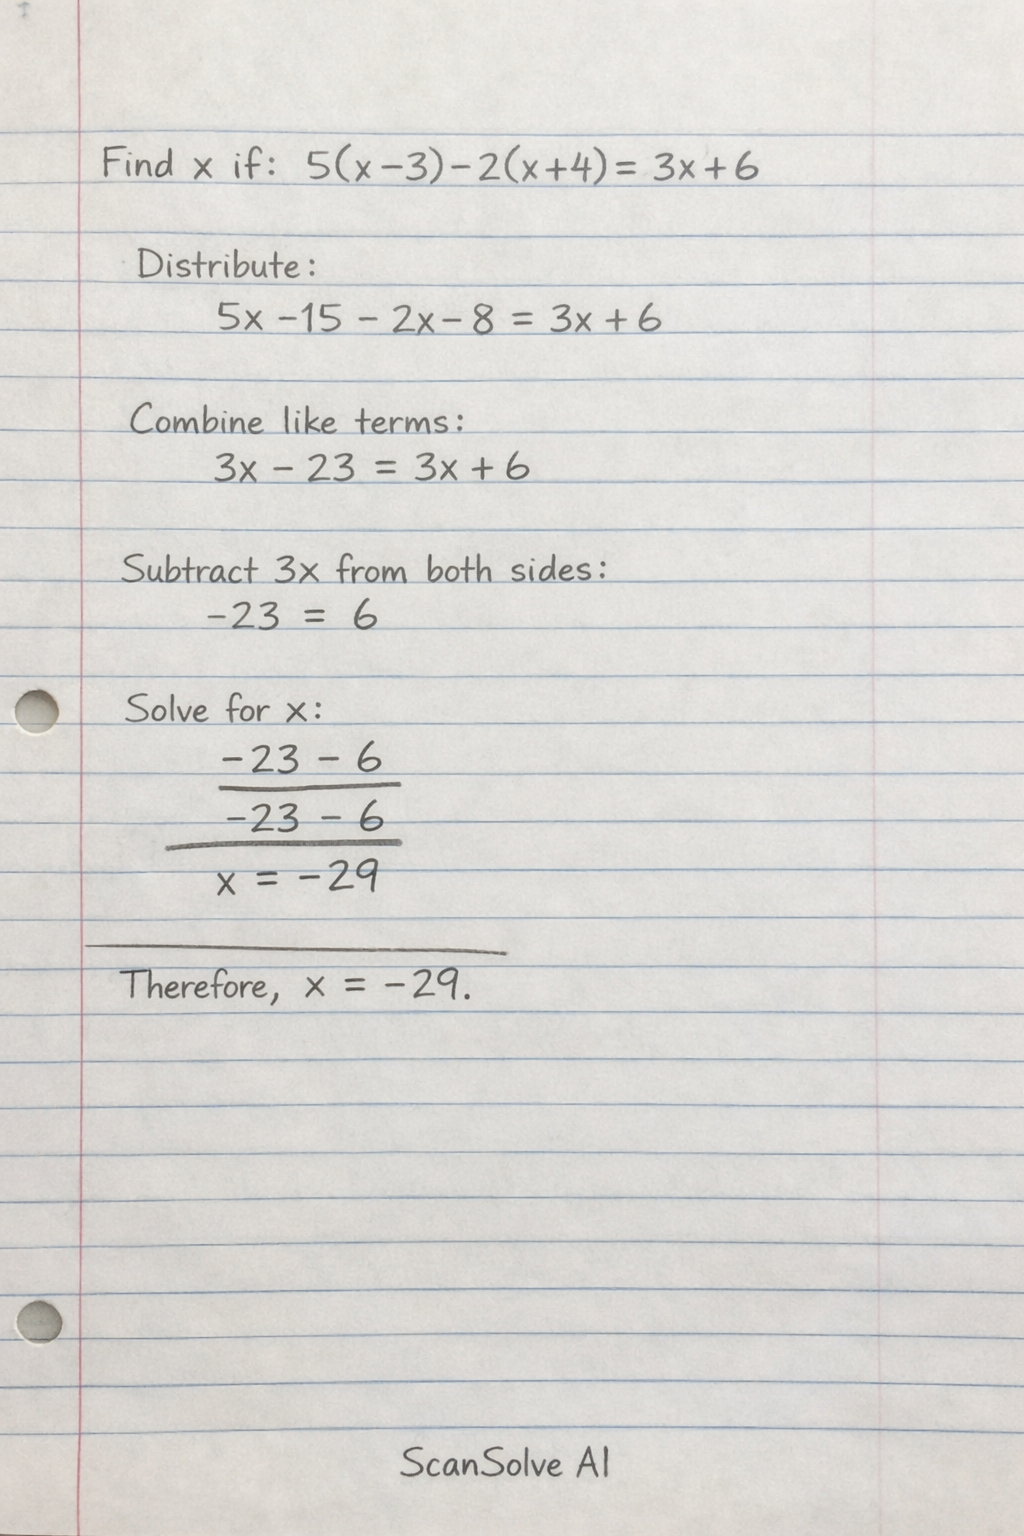 Find x if: 5(x-3)-2(x+4)= 3x+6
Distribute:
5x -15 - 2x-8 = 3x+6
Combine like terms:
3x - 23 = 3x+6
Subtract 3x from both sides:
-23 = 6
Solve for x:
-23 - 6
-23 - 6
x = -29
Therefore, x = -29.
ScanSolve AI